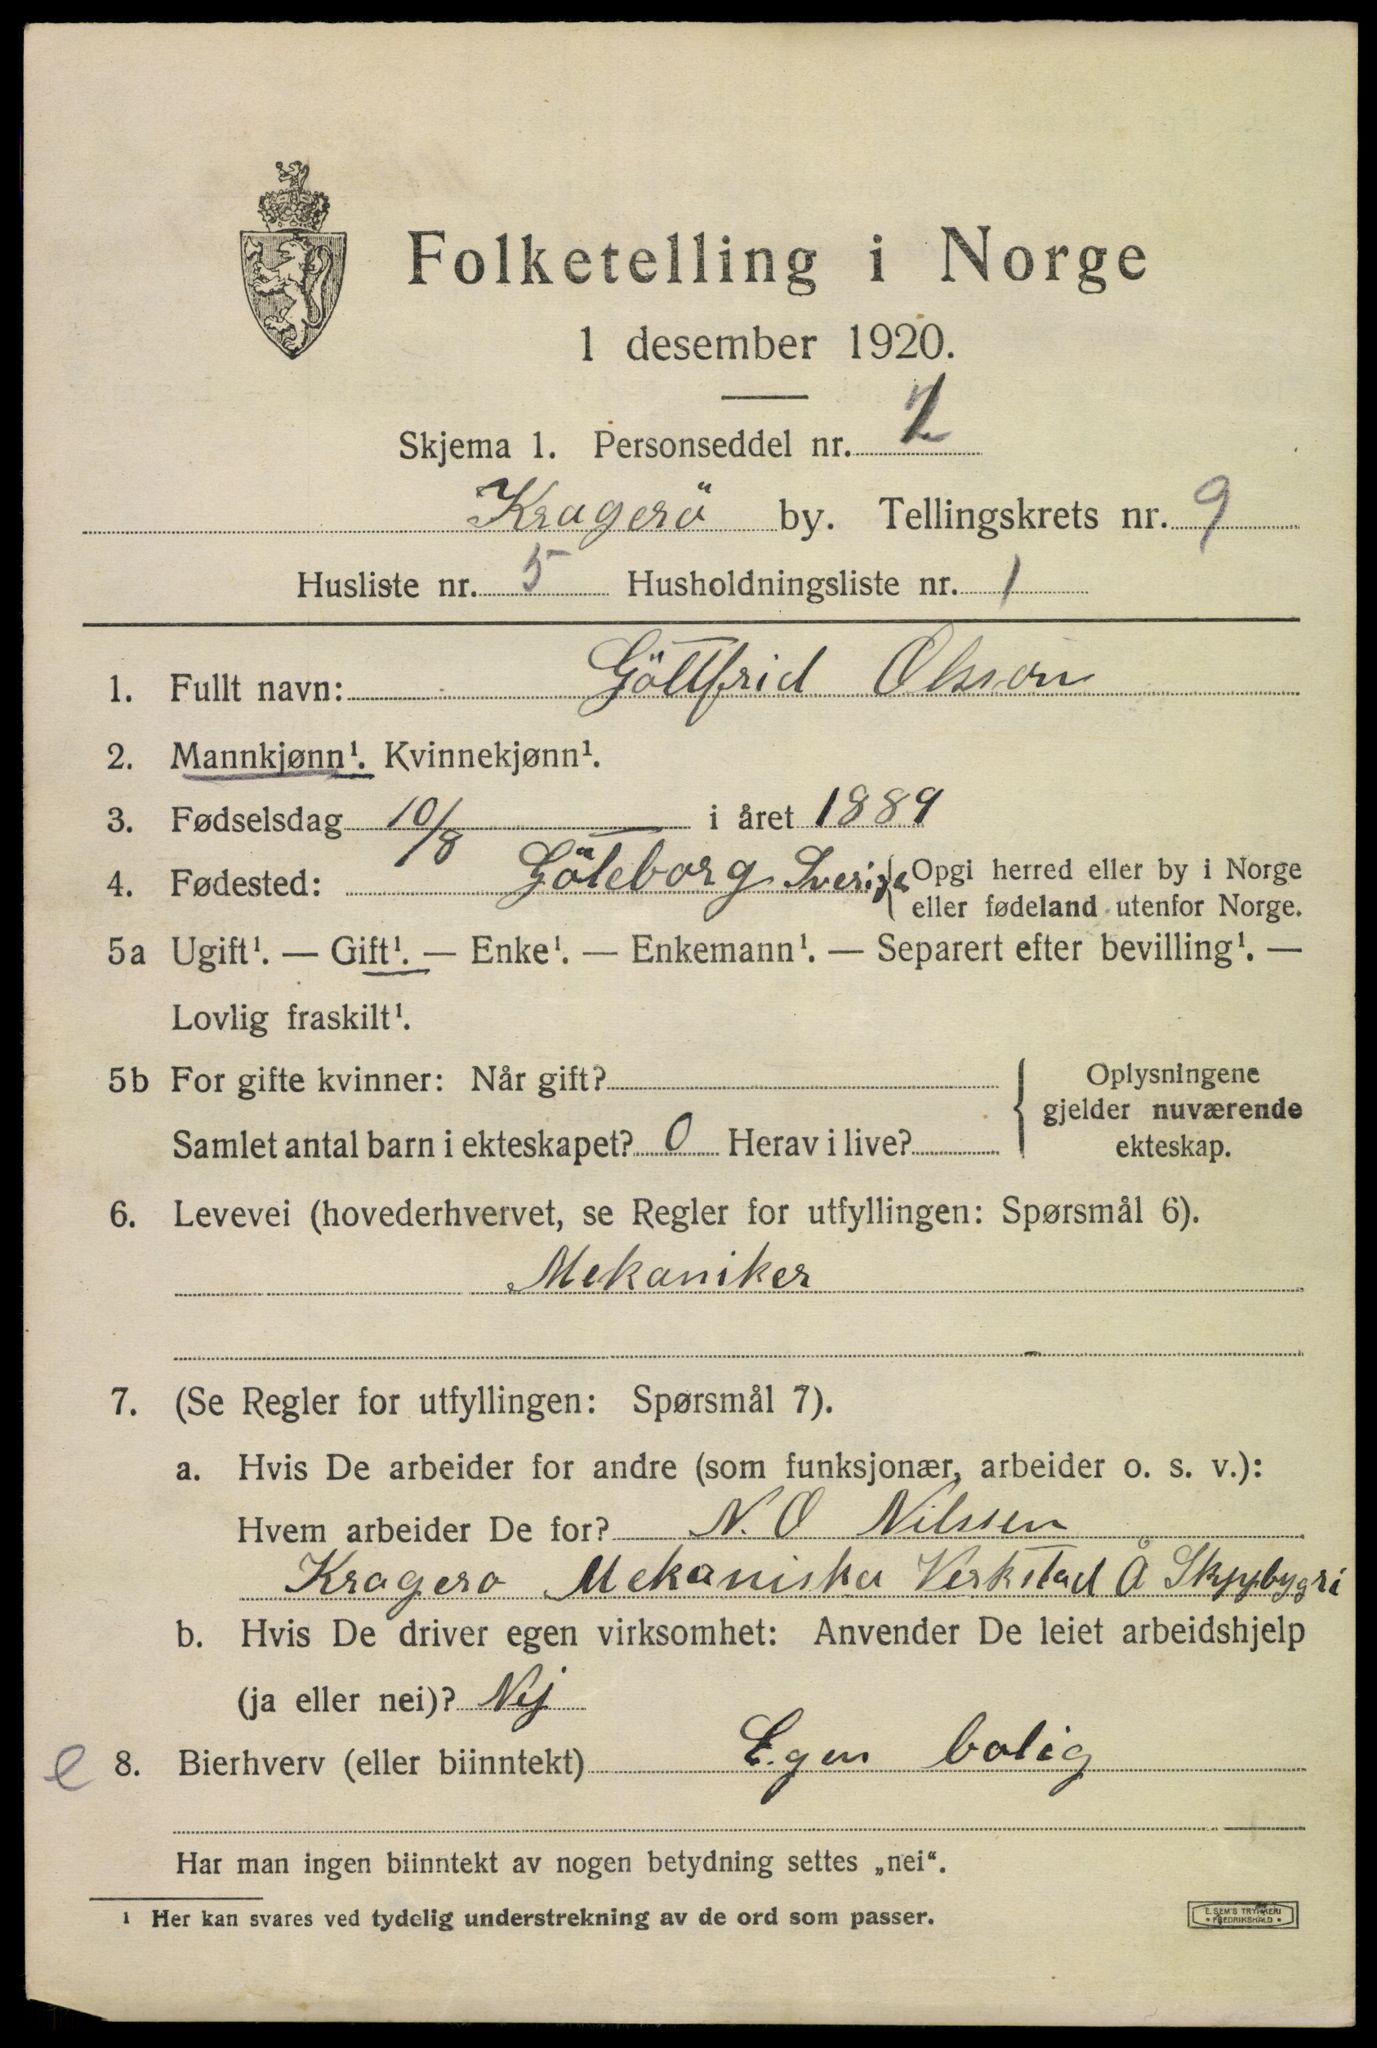 Folketelling i Norge
1 desember 1920.
Skjema 1. Personseddel nr. 2
Kragerö by. Tellingskrets nr. 9
Husliste nr. 5 Husholdningsliste nr. 1
1. Fullt navn: Göttfrid Olsson
2. Mannkjønn¹. Kvinnekjønn¹.
3. Fødselsdag 10/8 i året 1889
4. Fødested: Göteborg Sverige { Opgi herred eller by i Norge
eller fødeland utenfor Norge.
5a Ugift¹. — Gift¹. — Enke¹. — Enkemann¹. — Separert efter bevilling¹. —
Lovlig fraskilt¹.
5b For gifte kvinner: Når gift?
Samlet antal barn i ekteskapet? 0 Herav i live?
Oplysningene
gjelder nuværende
ekteskap.
6. Levevei (hovederhvervet, se Regler for utfyllingen: Spørsmål 6).
Mekaniker
7. (Se Regler for utfyllingen: Spørsmål 7).
a. Hvis De arbeider for andre (som funksjonær, arbeider o. s. v.):
Hvem arbeider De for? N. O Nilssen
Kragero Mekaniska Verkstad Å Skypbygri
b. Hvis De driver egen virksomhet: Anvender De leiet arbeidshjelp
(ja eller nei)? Nej
e 8. Bierhverv (eller biinntekt) Egen bolig
Har man ingen biinntekt av nogen betydning settes „nei".
¹ Her kan svares ved tydelig understrekning av de ord som passer.
E. SEM'S TRYKKERI
FREDRIKSHALD